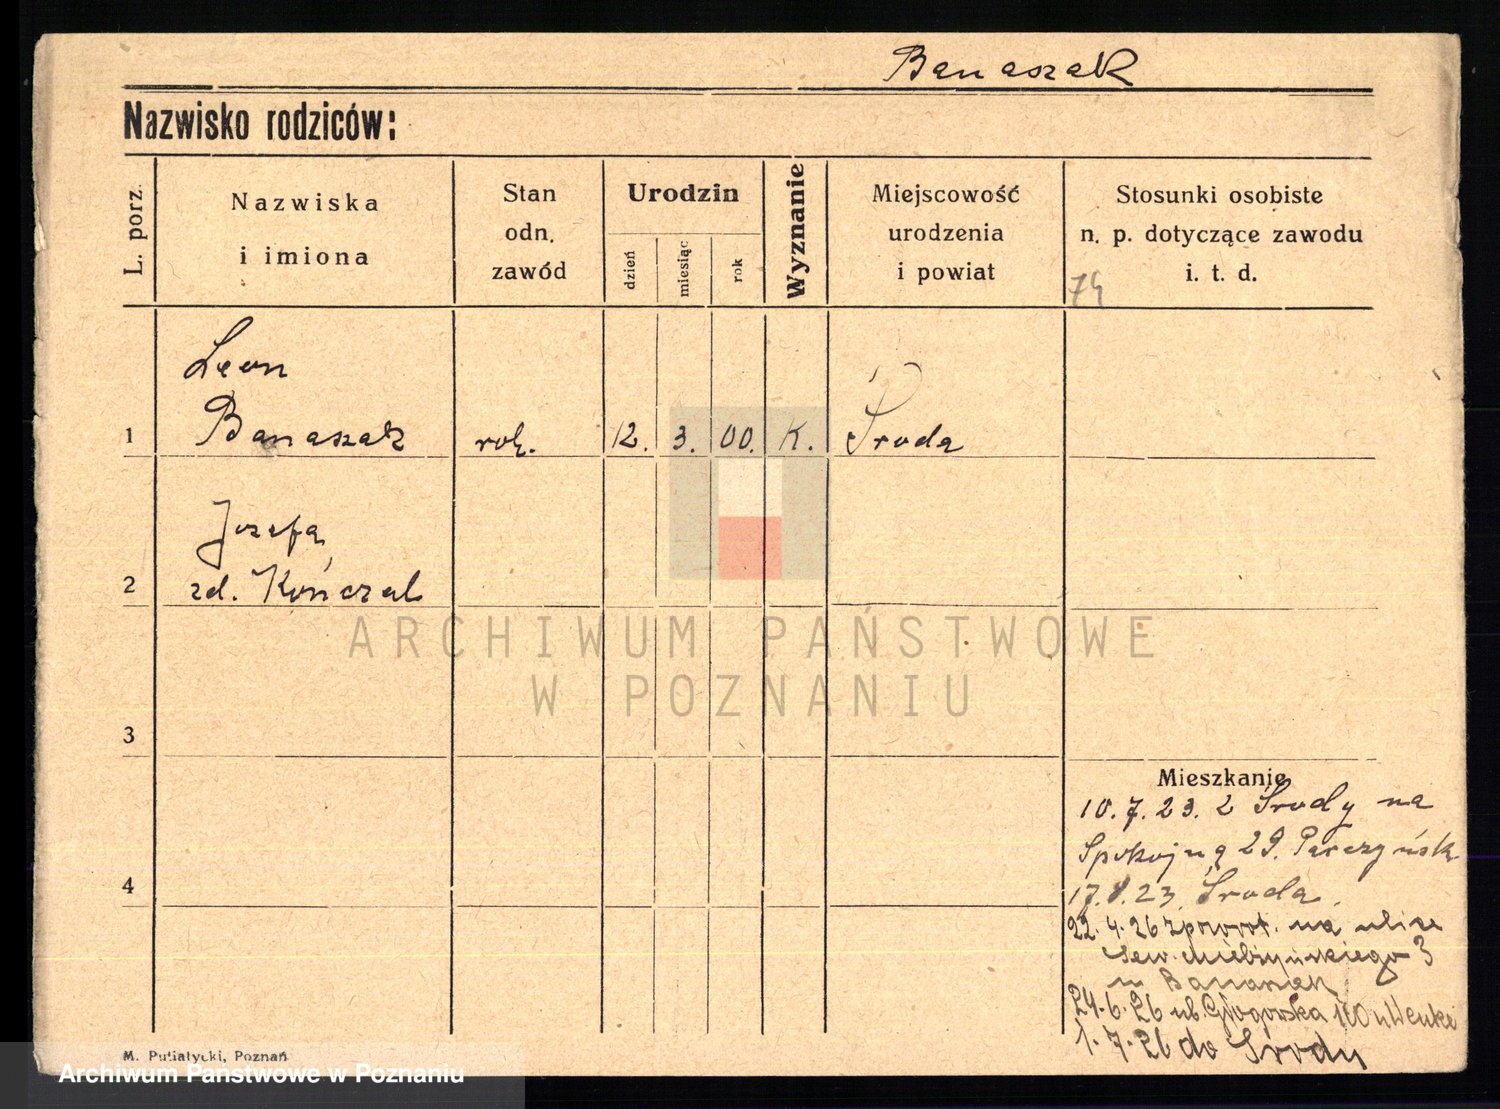 Banaszak
Nazwisko rodziców:
L. porz.
Nazwiska
i imiona
Stan
odn.
zawód
Urodzin
dzień
miesiąc
rok
Wyznanie
Miejscowość
urodzenia
i powiat
Stosunki osobiste
n. p. dotyczące zawodu
i. t. d.
74
Leon
1 Banaszak rob. 12. 3. 00. K. Środa
Józefa
2 zd. Kończal
3
4
Mieszkanie
10.7.23. z Środy na
Spokojną 29.
17.8.23. Środa.
22.4.26 zpowrot. na ulice
Sew. Mielżyńskiego 3
u Banaszak
24.6.26 ul. Głogowska 110 u
1.7.26 do Środy
M. Putiatycki, Poznań
ARCHIWUM PAŃSTWOWE
W POZNANIU
Archiwum Państwowe w Poznaniu